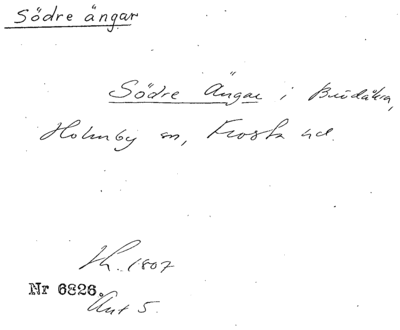 Södre ängar
Södre Ängar i Bradåkra,
Holmby sn, Frosta hd.
Lh. 1807
Nr 6826.
Ant 5.